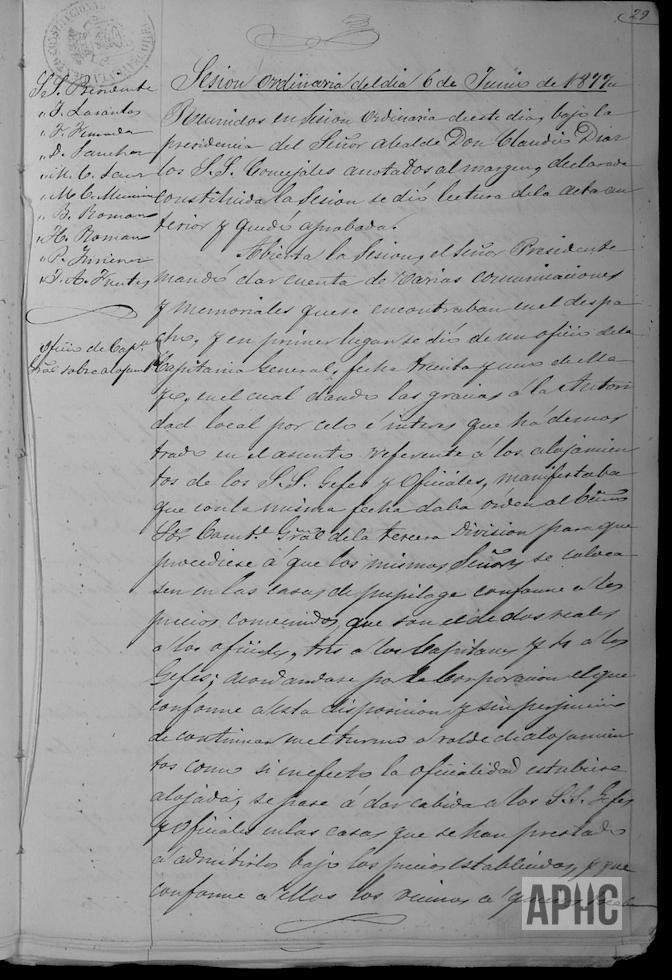 29
S. S. Presidente
" D. Sanchez
" B. Roman
" H. Roman
" P. Jimenez
" J. A. Fuentes
Oficio de Capnia
Gral sobre alojamtos
Sesion Ordinaria del dia 6 de Junio de 1877
Reunidos en Sesion Ordinaria de este dia, bajo la
presidencia del Señor Alcalde Don Claudio Diaz
los S. S. Concejales anotados al margen, declarada
constituida la Sesion se dió lectura de la acta an
terior y quedó aprobada.
Abierta la Sesion, el Señor Presidente
mandó dar cuenta de varias comunicaciones
y memoriales que se encontraban en el despa
cho, y en primer lugar se dió de un oficio de la
Capitania General, fecha treinta y uno de Ma
yo, en el cual dando las gracias á la Autori
dad local por celo é interes que há demos
trado en el asunto referente á los alojamien
tos de los S. S. Gefes y Oficiales, manifestaba
que con la misma fecha daba orden al Ecmo
Sor Comte Gral de la tercera Division para que
procediese á que los mismos Señores se coloca
sen en las casas de pupilage conforme á los
precios convenidos, que son el de dos reales
a los oficiales, tres a los Capitanes y 4 a los
Gefes; acordandose por la Corporacion el que
conforme a esta disposicion y sin perjuicio
de continuar en el turno o rolde de alojamien
tos como si en efecto la oficialidad estubiese
alojada, se pase á dar cabida a los S. S. Gefes
y Oficiales en las casas que se han prestado
a admitirlos bajo los precios establecidos, y que
conforme a ellos los vecinos a quienes
APHC